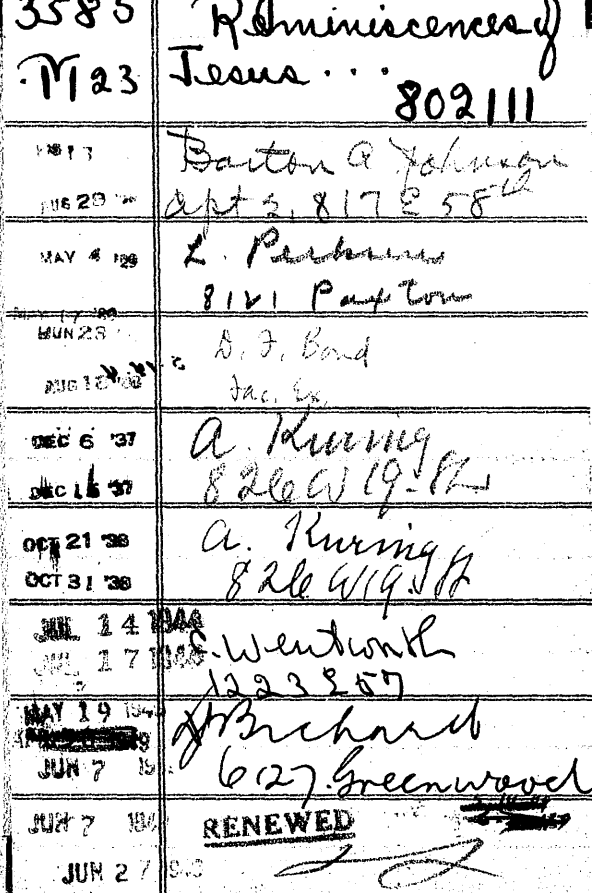 3585 Reminiscences of
.M23 Jesus ...
802111
Barton A Johnson
AUG 29 Apt 2, 817 E 58th
MAY 4 '29 L. Perkins
8121 Paxton
MAY 17 '29
JUN 28 D. F. Bond
AUG 18 Fac. Ex.
DEC 6 '37 A. Kuring
DEC 15 '37 826 W 19-St
OCT 21 '38 A. Kuring
OCT 31 '38 826 W 19. St
JUL 14 194 S. Wentworth
JUL 17 194 1223 E 57
MAY 19 194 Brichard
JUN 7 19 6127. Greenwood
JUN 7 194 RENEWED
JUN 27